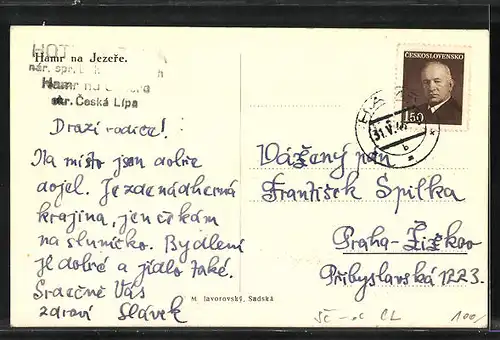 Hamr na Jezeře.
HOT
nár. spr.
Hamr na
okr. Česká Lípa
ČESKOSLOVENSKO
1.50
31.V.
Drazí rodiče!
Na místo jsem dobře
dojel. Je zde nádherná
krajina, jen čekám
na sluníčko. Bydlení
je dobré a jídlo také.
Srdečně Vás
zdraví Slávek
Vážený pán
František Špilka
Praha-Žižkov
Přibyslavská 1223.
M. Javorovský, Sadská
CL
100/